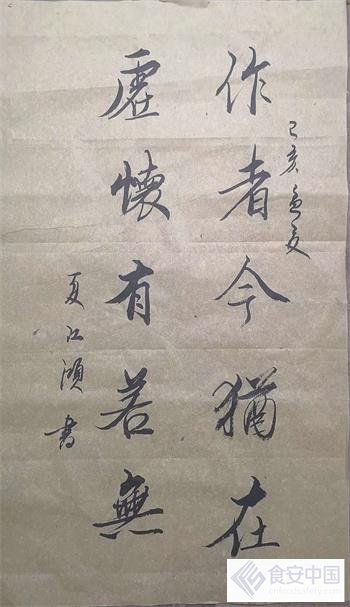 己亥孟夏
作者今猶在
虛懷有若無
夏江
書
食安中国
cnfoodsafety.com